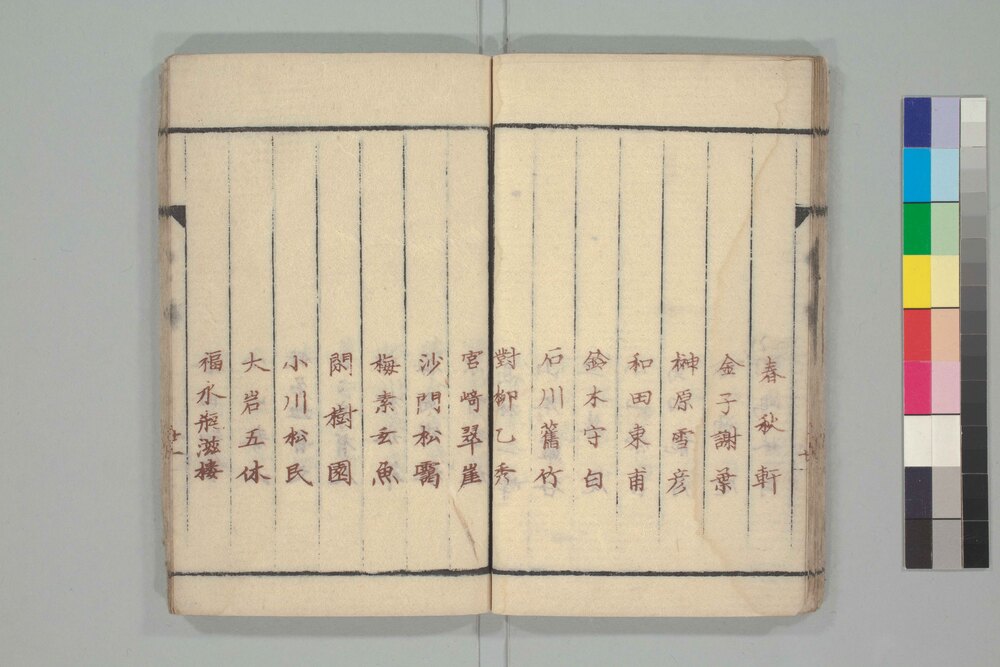 春秋軒
金子謝葉
榊原雪彦
和田東甫
鈴木守白
石川舊竹
對柳乙秀
宮﨑翠崖
沙門松靄
梅素玄魚
閑樹園
小川松民
大岩五休
福水瓶滋棲